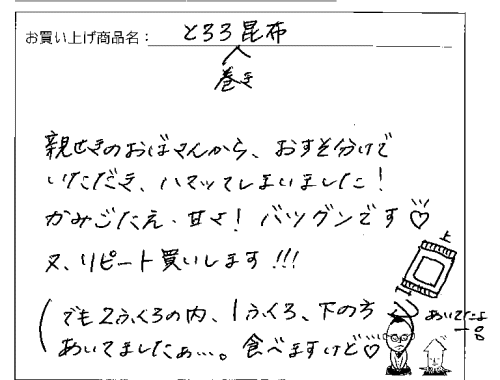 お買い上げ商品名：とろろ昆布
巻き
親せきのおばさんから、おすそ分けで
いただき、ハマッてしまいました！
かみごたえ・甘さ！バツグンです♡
又、リピート買いします!!!
上
(でも2ふくろの内、1ふくろ、下の方
あいてましたぁ…。食べますけど♡
あいてたよ